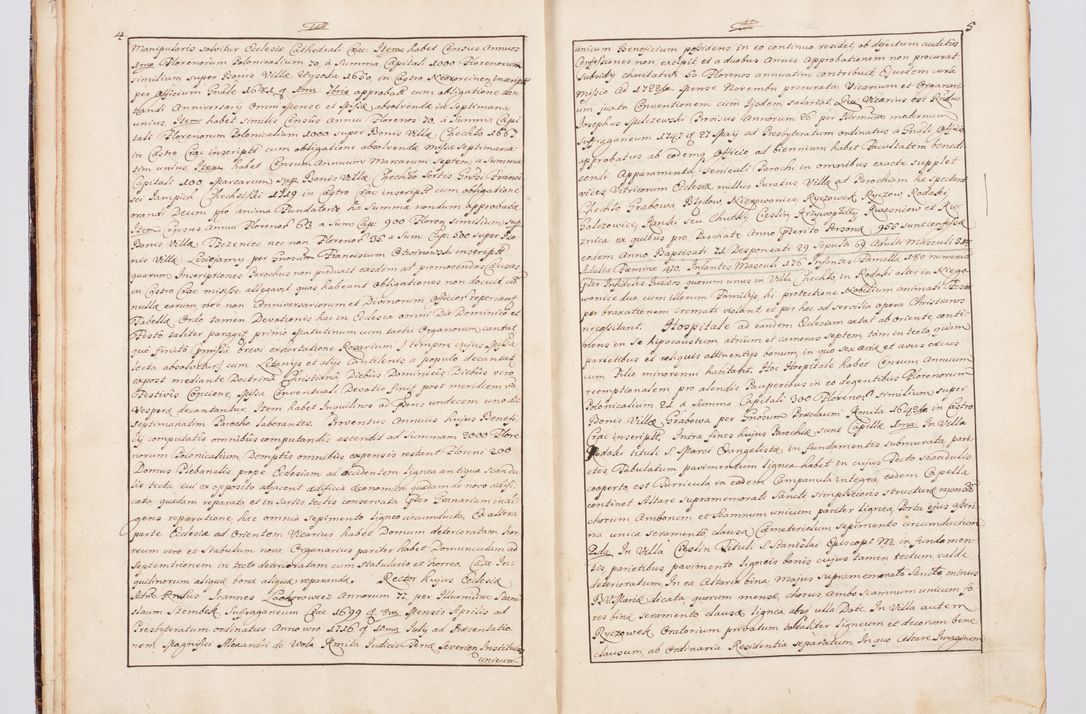 4
Manipularis solvitur Ecclesiæ Cathedrali Crac: Item habet Census Annuos
1mo Florenorum Polonicalium 70, à Summa Capitali 1000 Florenorum
similium super Bonis Villæ Wysoka 1650, in Castro
per Officium approbatæ cum obligatione
Anniversarij Omni Mense et Missæ absolvendæ in Septimana
unius. Item habet similis Census Annui Florenos 70, à Summa Capi
tali Florenorum Polonicalium 1000 super Bonis Villæ Chechło 1667
in Castro Crac: inscriptæ cum obligatione absolvendæ Missæ Septimana
tim unius. Item habet Censum Annuum Marcarum Septem à Summa
Capitali 100 Marcarum Sup: Bonis Villæ Chechło Sortis Gnosi Franci
sci Jampich Chechelski 1719 in Castro Crac: inscriptæ cum obligatione
orandi Deum pro anima Fundatoris hæ Summæ nondum approbatæ
Item Census Annui Florenos 63 a Sum: Cap: 900 Floren: Similium sup:
Bonis Villæ nec non Florenos 35 a Sum: Cap: 500 super Bo
nis Villæ per Gnosum Franciscum inscriptæ
quarum Inscriptiones Parochus non produxit easdem ad promovendas causas
in Castro Crac: misisse allegavit quas habeant obligationes non docuit cum
nulla earum nec non Anniversariorum et Divinorum Officior: reperiatur
Tabella. Ordo tamen Devotionis hac in Ecclesia omni Die Dominico et
Festo taliter peragit: primo Matutinum cum tactu Organorum cantat
quo finito præmissa brevi exhortatione Rosarium tempore cujus Missa
lecta absolvitur, cum Litanijs et alijs Cantilenis a populo decantat
expost mediante Doctrina Christiana Diebus Dominicis, Diebus vero
Festivis Concione, Missa Conventuali Devotio finit: post meridiem vo
Vesperæ decantantur. Item habet Inquilinos ad Agros undecem uno die
Septimanatim Parocho laborantes. Proventus Annuus hujus Benefi
cij computatis omnibus computandis ascendit ad Summam 2000 Flore
norum Polonicalium Demptis omnibus expensis restant Floreni 200
Domus Plebanalis, prope Ecclesiam ad Occidentem lignea antiqua Scandu
lis tecta cui ex opposito adjacent ædificia œconomica quædam de novo ædifi
cata, quædam reparata, et in Sartis tectis conservata Præter Granarium indi
gens reparatione hæc omnia Sepimento ligneo circumducta. Ex altera
parte Ecclesiæ ad Orientem Vicarius habet Domum deterioratam Hor
reum vero et Stabulum nova. Organarius pariter habet Domunculam ad
Septemtrionem in tecto deterioratam cum Stabulario et Horreo. Casæ In
quilinorum aliquæ bonæ aliquæ reparandæ. Rector hujus Ecclesiæ
Adm: Rndus Joannes Annorum 77 per Illurmum Stani
slaum Szembek Suffraganeum Crac: 1699 d. 3tia Mensis Aprilis ad
Presbyteratum ordinatus Anno vero 1716 d. 10ma Julij ad Præsentatio
nem Magnifici Alexandri de Wola Romita Judicis Terræ Severien: Institutus
unicum
5
unicum Beneficium possidens in eo continuo residet, ob defectum auditus
Confessiones non excipit et a duobus Annis Approbationem non procurat
Subsidij charitativi 50 Florenos annuatim contribuit. Ejusdem cura
missio Ad 1744to Mense Novembri procurata, Vicarium et Organari
um juxta Conventionem cum Ijsdem salariat. Vicarius est Rndus
Josephus Provisus Annorum 26 per Illrmum modernum
Suffraganeum 1747 d. 27 Maij ad Presbyteratum ordinatus à Gnali Officio
approbatus ab eodem Officio ad biennium habet Facultatem benedi
cendi Apparamenta, Seniculi Parochi in omnibus exacte supplet
vices, Vitricorum Ecclesiæ nullus Juratus. Villæ ad Parochiam hanc spectant
Chechło Grabowa Błędow, Niegowonice Ryczowek, Ryczow, Rodaki
Golczowice, seu Chuchły, Cieslin Krzywopłoty, Kwasniow et
ex quibus pro Paschate Anno præterito Personæ 955 sunt confessæ
eotem Anno Baptisati 71 Desponsati 29 Sepulti 69 Adulti Masculi
Adultæ Fæminæ 470. Infantes Masculi 176 Infantes Famellæ 180 numera
præter Infideles Judæos quorum unus in Villa Chechło, in Rodaki alter in Niego
wonice duo cum illorum Familijs, hi protectione Nobilium animati Festa
per braxationem cremati violant, et per hoc ad servilia opera Christianos
necessitant. Hospitale ad eandem Ecclesiam extat ab oriente conti
nens in Se hipocaustum atrium et cameras septem tam in tecto quam
parietibus et reliquis attinentijs bonum, in quo sex avia et avus cæcus
cum Filio minorenni habitant. Hoc Hospitale habet Censum Annuum
reemptionalem pro alendis Pauperibus in eo degentibus Florenorum
Polonicalium 21 à Summa Capitali 300 Florenorum similium super
Bonis Villæ Grabowa per Gnosum Præclaum Romita 1642do in Castro
Crac: inscriptæ. Intra fines hujus Parochiæ sunt Capellæ 1ma In Villa
Rodaki tituli S. Marci Evangelistæ in fundamentis submurata, pari
etes Tabulatum pavimentum lignea habet in cujus Tecto Scandulis
cooperto, est Turricula in eadem Campanula integra, eadem Capella
continet Altare supramemorati Sancti simplicioris structuræ mona
chorum Ambonem et Scamnum unicum pariter lignea, Porta ejus asseri
na unica seramento, clausa Cæmeteriolum Sepimento circumductum
2da In Villa Cieslin Tituli S. Stanislai Episcopi M. in fundamen
tis parietibus pavimento ligneis bonis cujus tamen tectum valde
deterioratum. In ea Altaria bina, majus supramemorato Sancto minus
B.V. Mariæ dicata, quorum mensæ, chorus Ambo Scamnum unicum fo
res binæ seramento clausæ lignea absque ulla Dote. In Villa autem
Ryczowek Oratorium privatum totaliter ligneum et decorum bene
clausum ab Ordinaria Residentia separatum. In quo Altare Imaginem